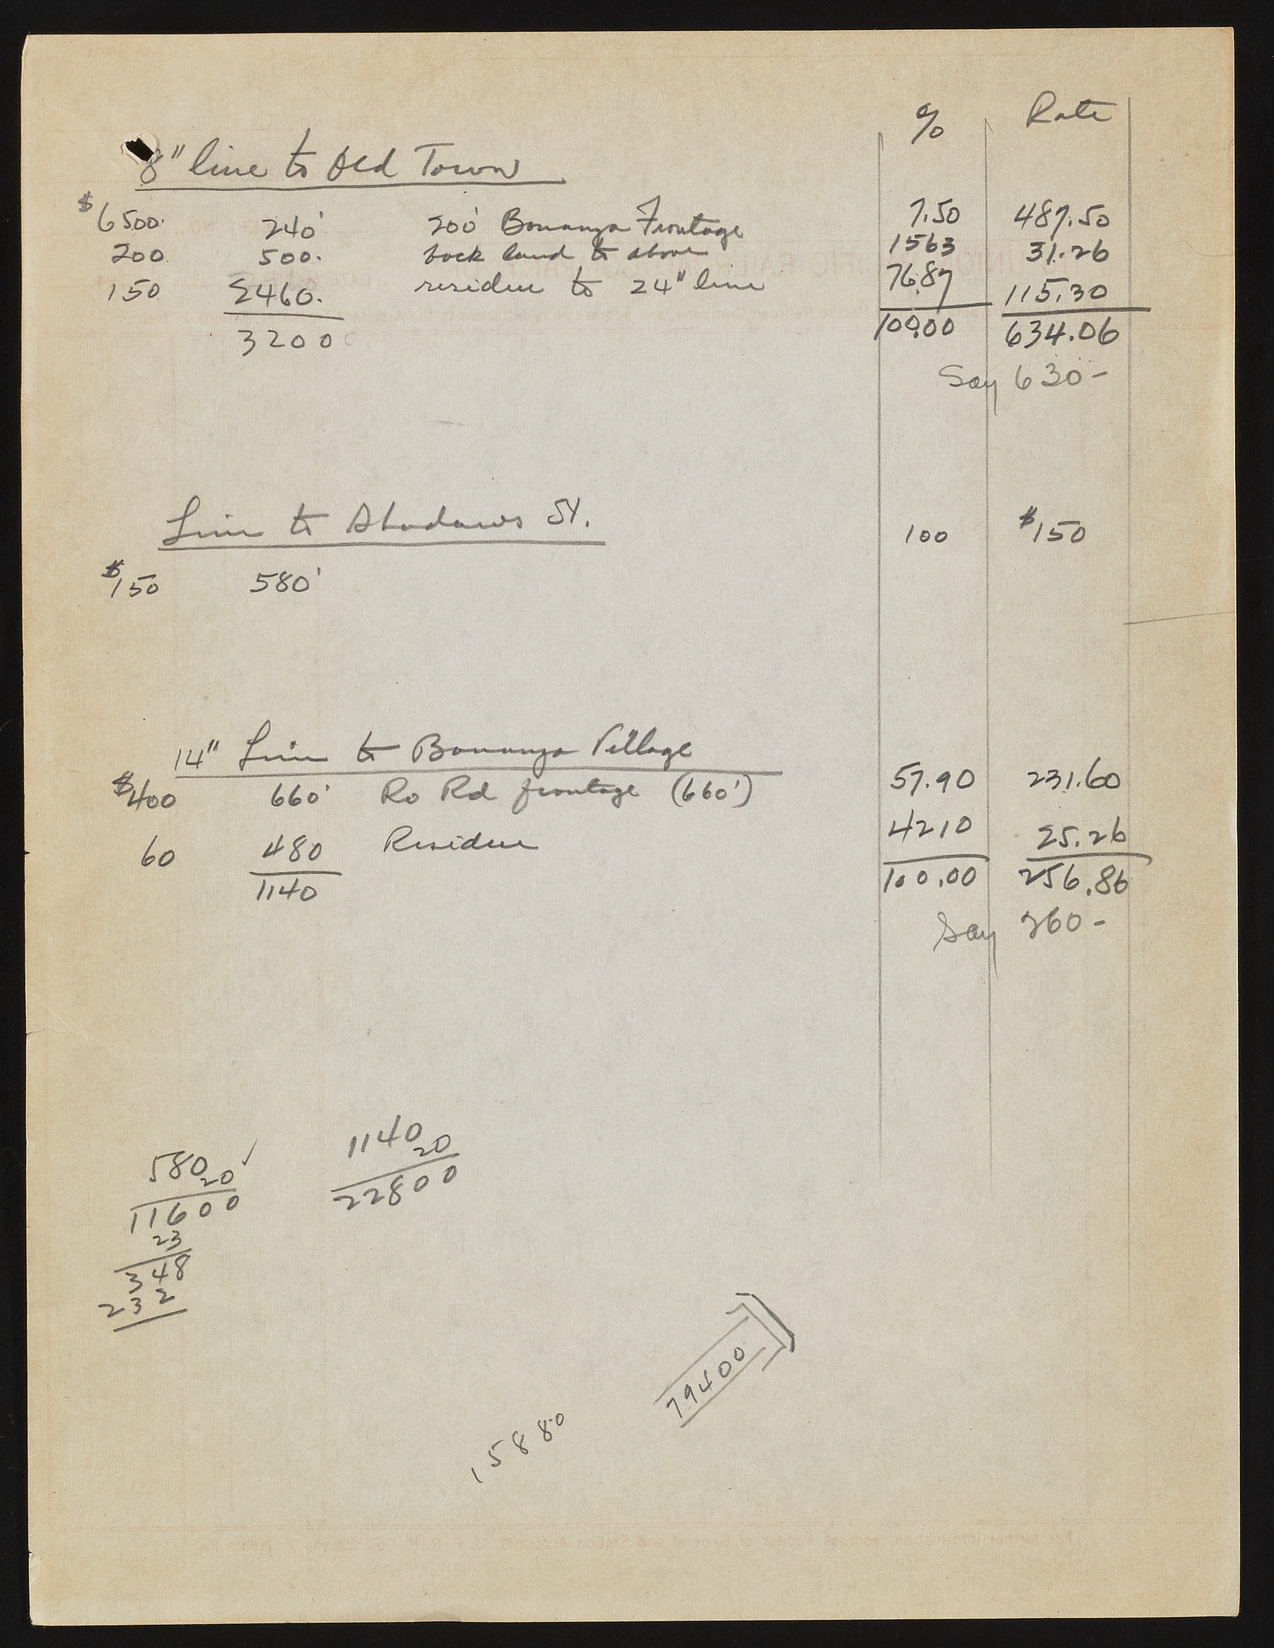 % Rate
8" line to Old Town
$6500. 240' 200' Bonanza Frontage 7.50 487.50
200 500. back land to above 1563 31.26
150 2460. residue to 24" line 76.87 115.30
3200 100.00 634.06
Say 630-
Line to Shadows St. 100 $150
$150 580'
14" Line to Bonanza Village
$400 660' Ro Rd frontage (660') 57.90 231.60
60 480 Residue 4210 25.26
1140 100.00 256.86
Say 260-
580 1140
20 ✓ 20
11600 22800
23
348
232
79400
15880